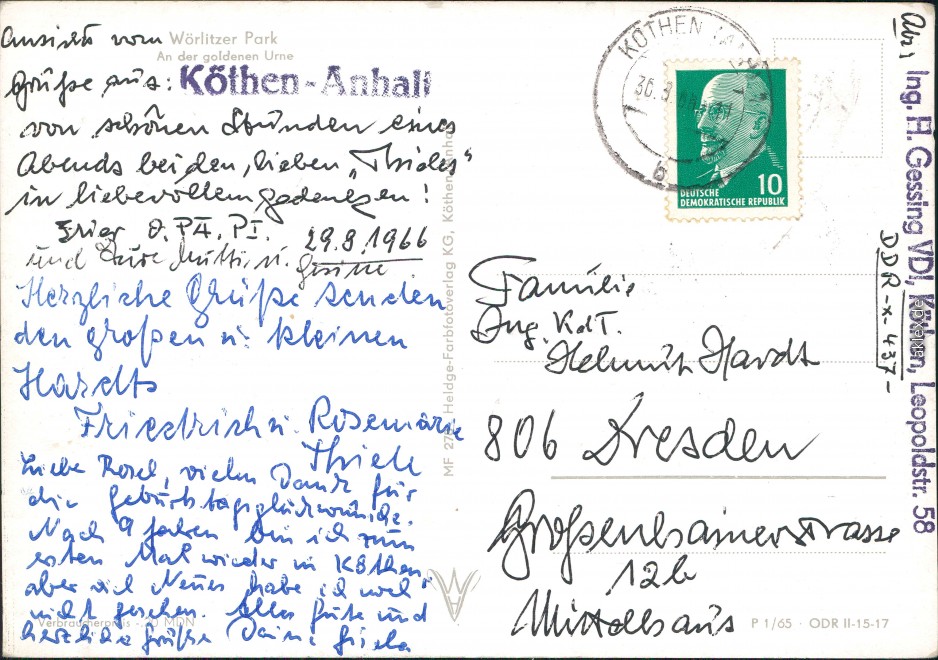 Ansicht vom Wörlitzer Park
An der goldenen Urne
Grüße aus: Köthen-Anhalt
von schönen Stunden eines
Abends bei den, lieben "Thieles"
in liebevollem gedenken!
29.8.1966
und Eure Mutti u.
Herzliche Grüße senden
den großen u. kleinen
Hardts
Friedrich u. Rosemarie
Thiele
Liebe Rosel, vielen Dank für
die Geburtstagsglückwünsche.
Nach 9 Jahren bin ich zum
ersten Mal wieder in Köthen,
aber viel Neues habe ich wohl
nicht gesehen. Alles Gute und
herzliche Grüße Deine Gisela
Verbraucherpreis - 20 MDN
Heldge-Farbfotoverlag KG, Köthen-Anhalt
KÖTHEN (ANH
b
10
DEUTSCHE
DEMOKRATISCHE REPUBLIK
Familie
Ing. KdT.
Helmut Hardt
806 Dresden
Großenhainerstrasse
12b
Mittelhaus
P 1/65 · ODR II-15-17
Abs. Ing. H. Gessing VDI, Köthen, Leopoldstr. 58
DDR-x-437-